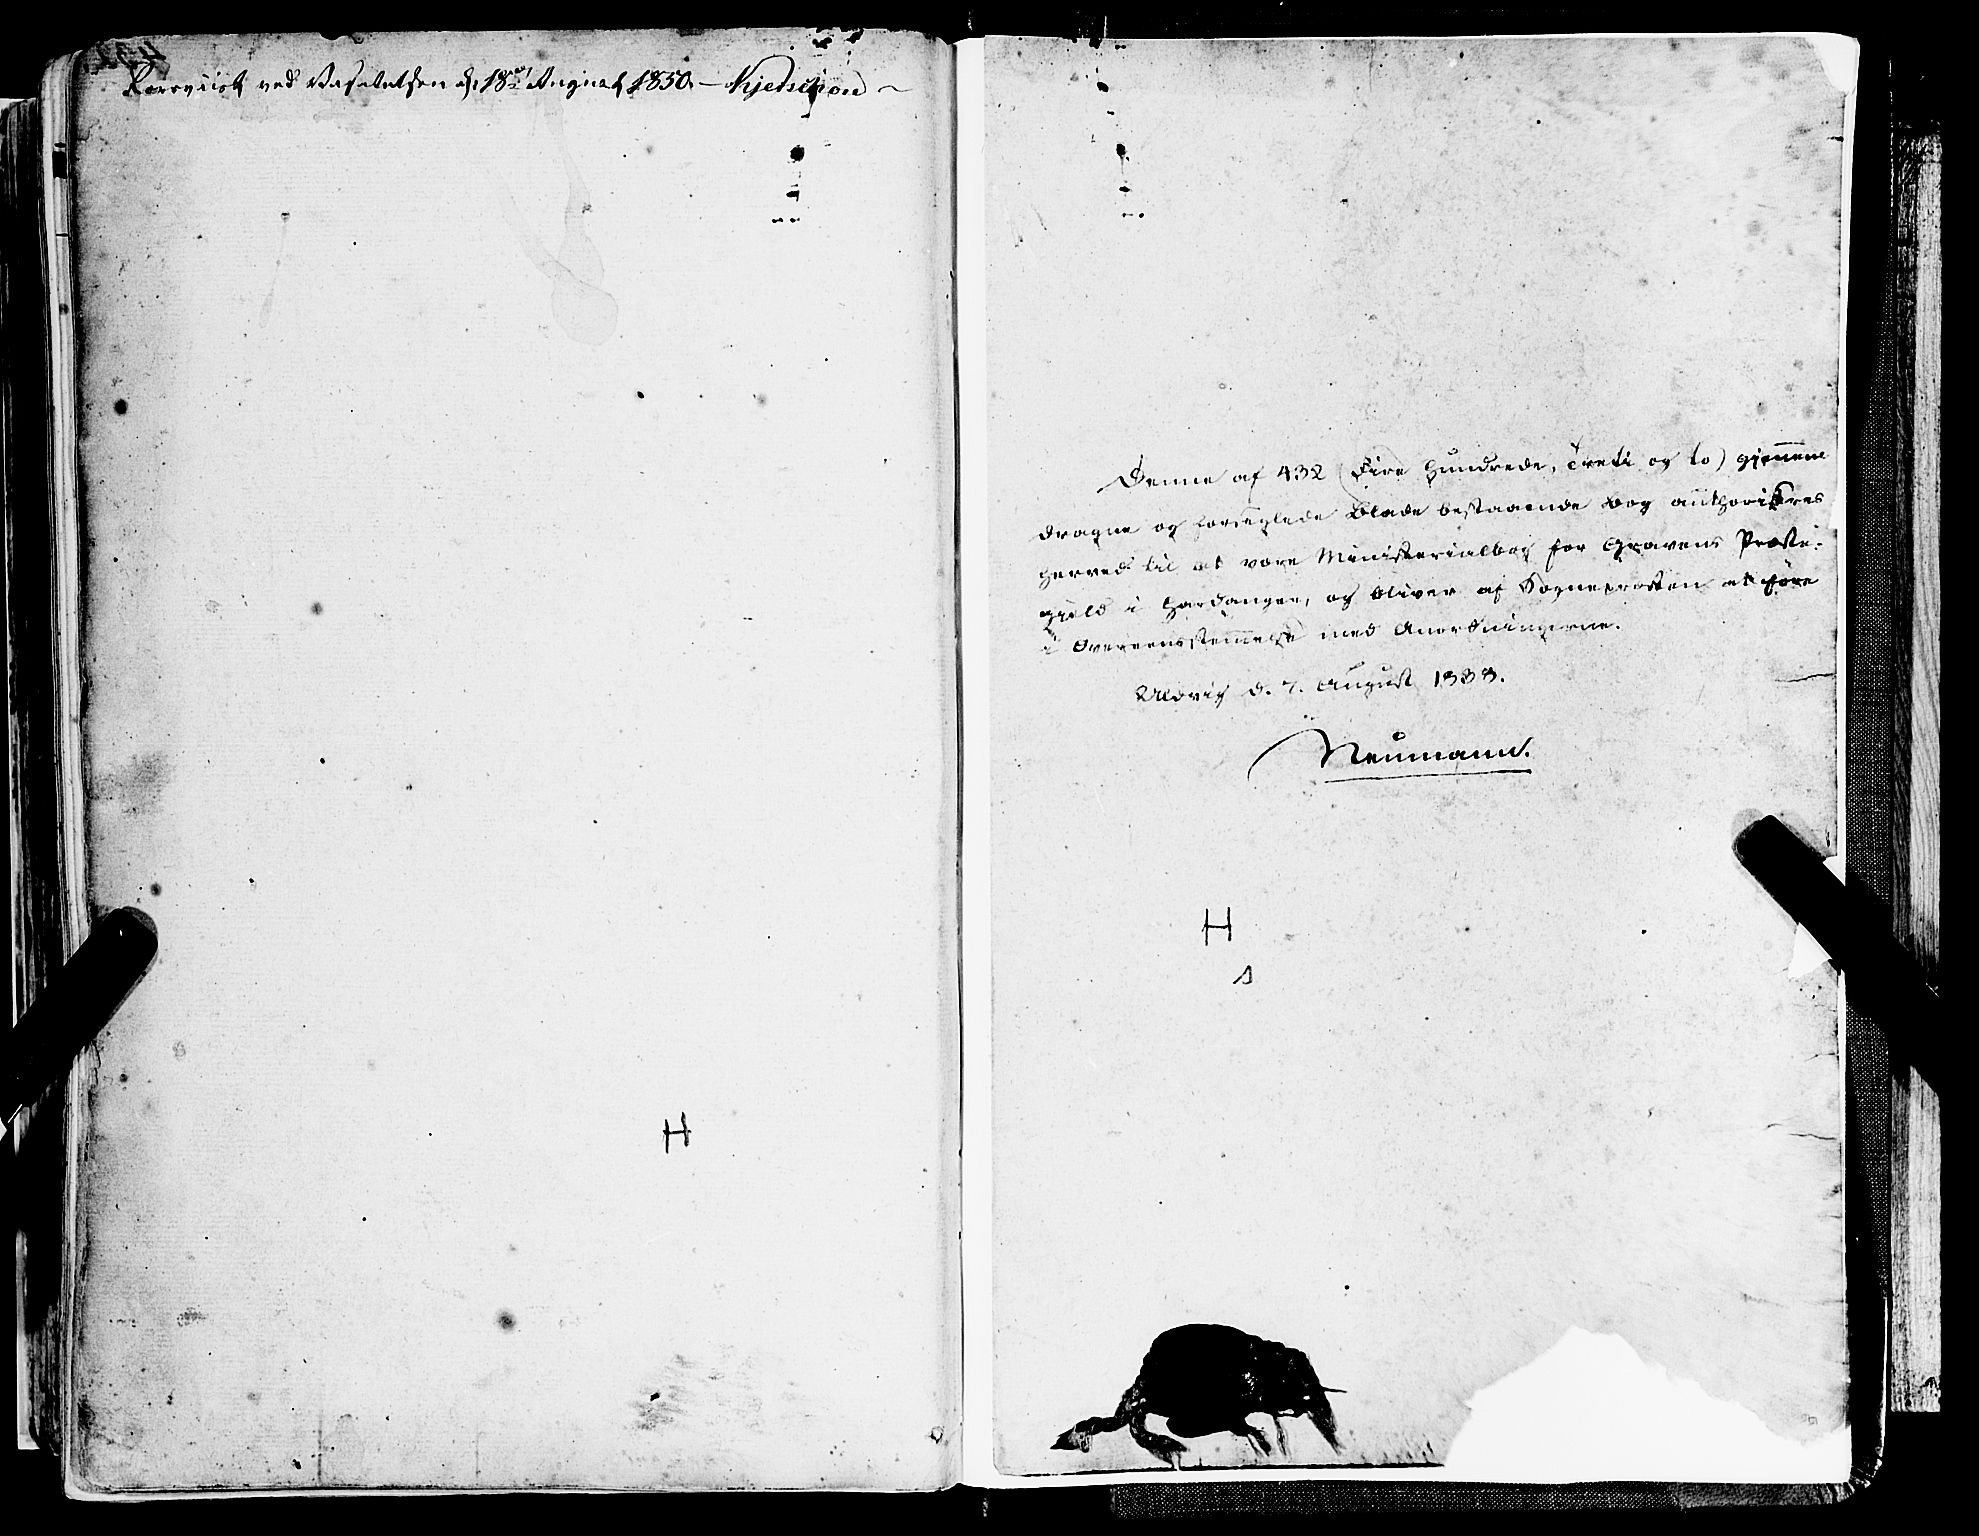 432
Foreviist ved Visitatsen d. 18de August 1850. – Kjerschow –
Denne af 432 (Fire hundrede, Treti og to) gjennem
dragne og forseglede Blade bestaaende Bog authoriseres
herved til at være Ministerialbog for Gravens Præste-
gield i Hardanger, og bliver af Sognepræsten at føre
i Overeensstemmelse med Anordningerne.
Ulvig d. 7. August 1833.
Neumann.
H
s
H